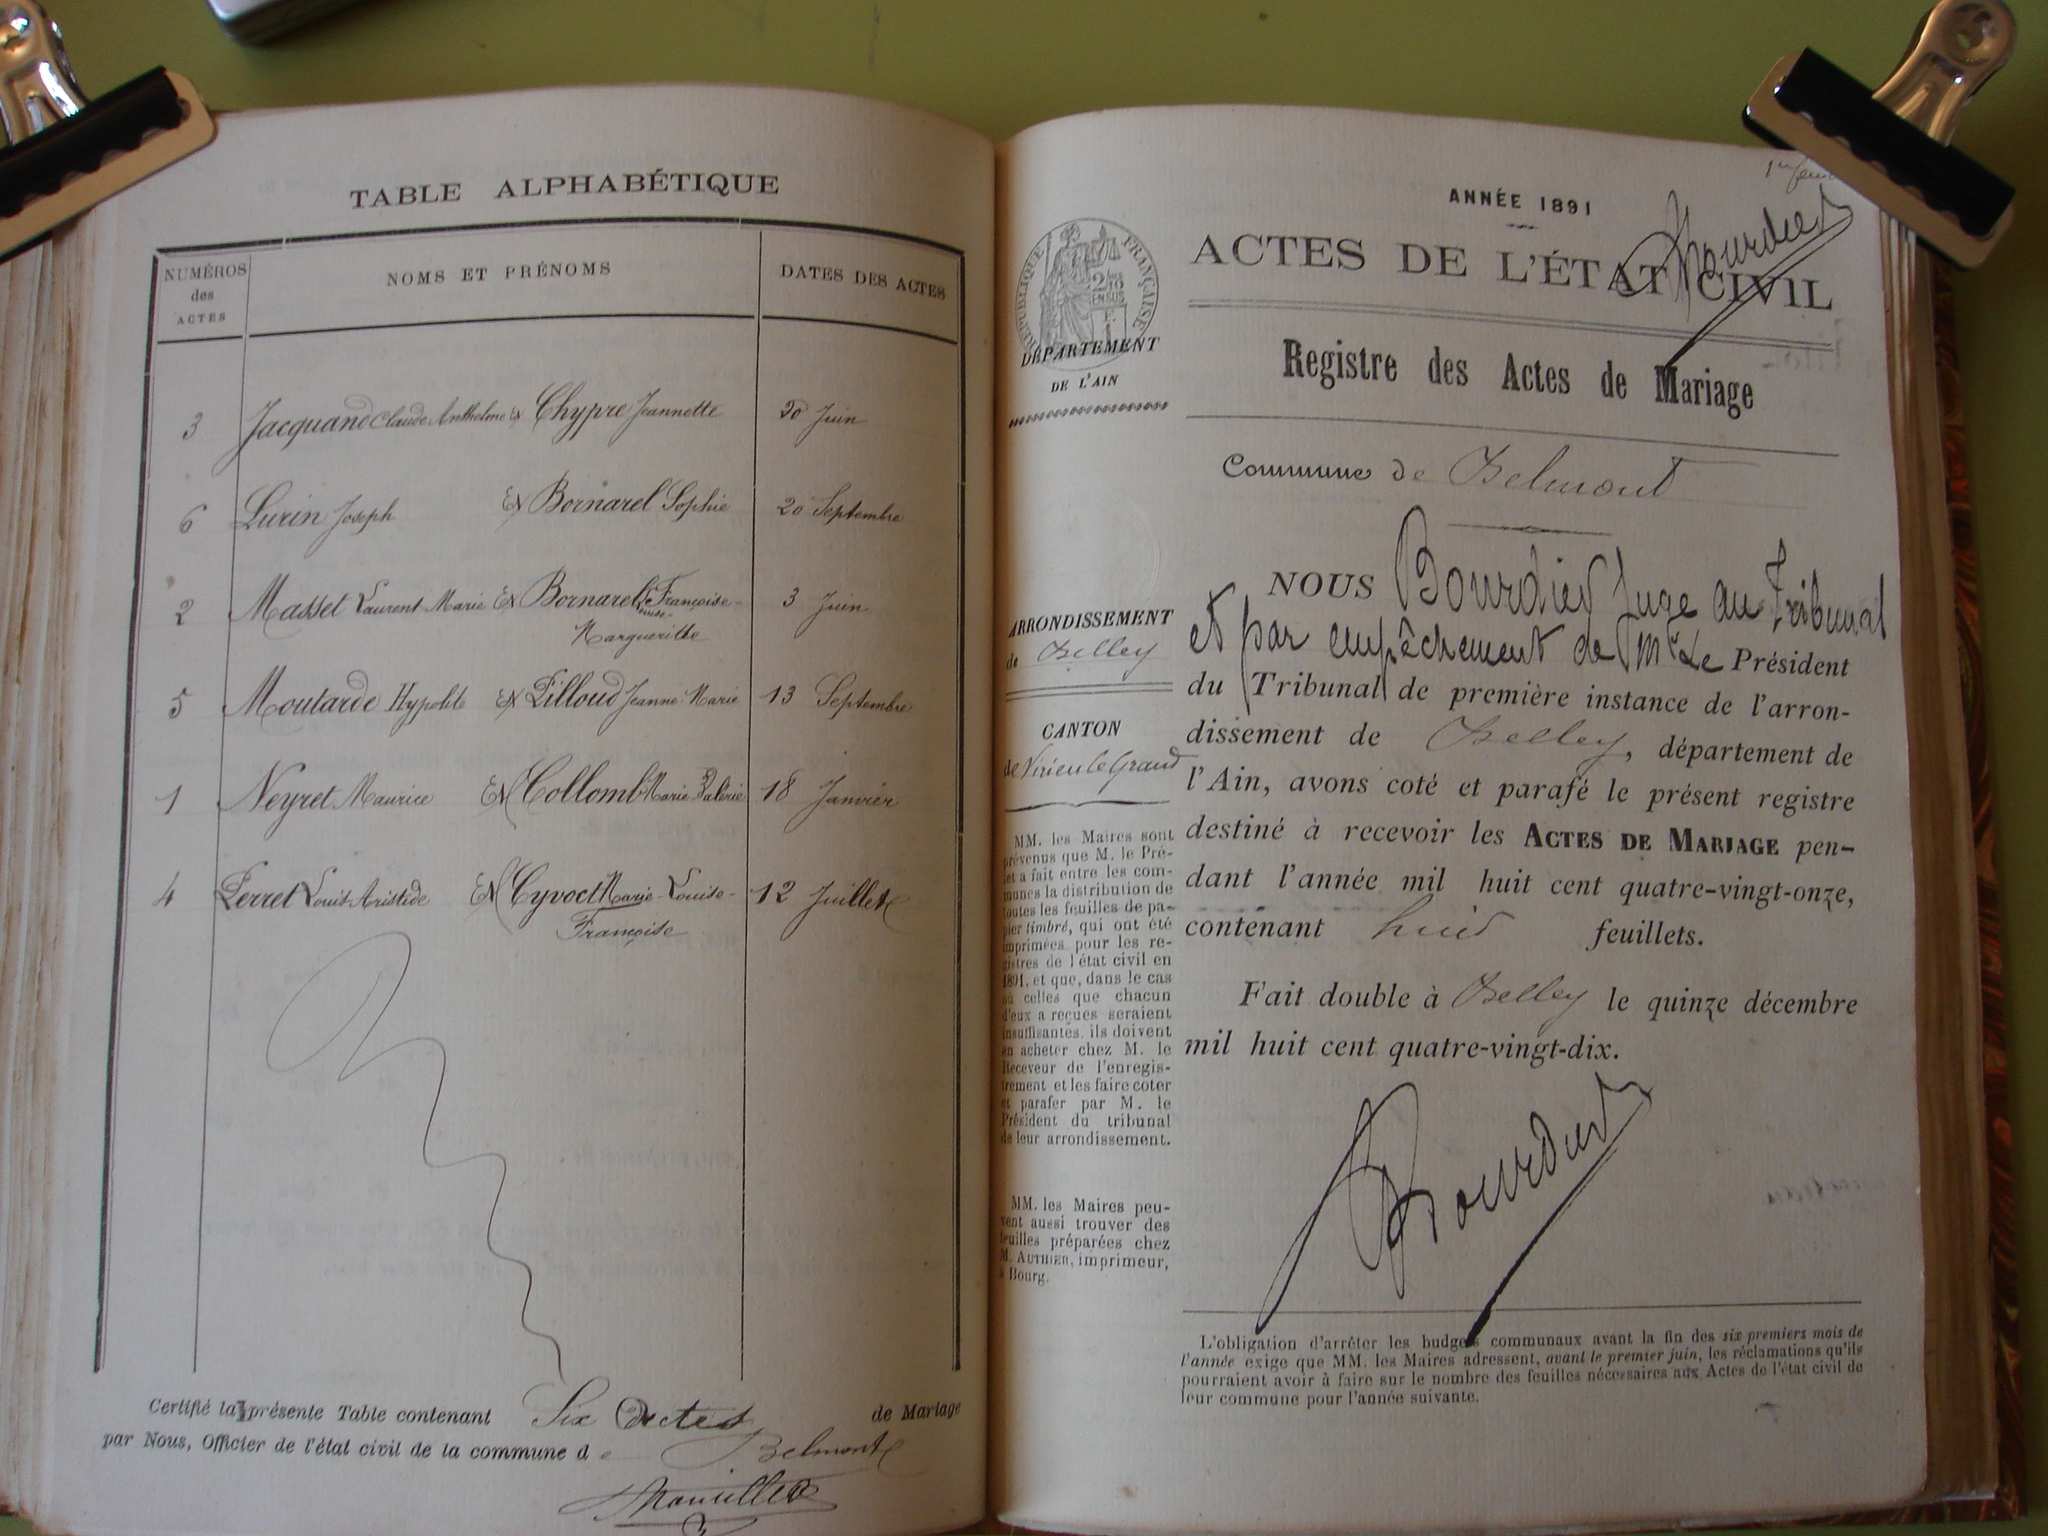 TABLE ALPHABÉTIQUE
NUMÉROS des ACTES NOMS ET PRÉNOMS DATES DES ACTES
3 Jacquand Claude Anthelme Et Chypre Jeannette 30 Juin
6 Lurin Joseph Et Bornarel Sophie 20 Septembre
2 Masset Laurent Marie Et Bornarel Françoise-
Louise-
Marguerithe 3 Juin
5 Moutarde Hypolite Et Pilloud Jeanne-Marie 13 Septembre
1 Neyret Maurice Et Collomb Marie-Valérie 18 Janvier
4 Perret Louis-Aristide Et Cyvoct Marie-Louise-
Françoise 12 Juillet
Certifié la présente Table contenant Six Actes de Mariage
par Nous, Officier de l'état civil de la commune de Belmont
1er feuil
ANNÉE 1891
Bourdier
ACTES DE L'ÉTAT CIVIL
RÉPUBLIQUE FRANÇAISE
DÉPARTEMENT
DE L'AIN
Registre des Actes de Mariage
Commune de Belmont
ARRONDISSEMENT
de Belley
CANTON
de Virieu le Grand
MM. les Maires sont
prévenus que M. le Pré-
fet a fait entre les com-
munes la distribution de
toutes les feuilles de pa-
pier timbré, qui ont été
imprimées pour les re-
gistres de l'état civil en
1891, et que, dans le cas
où celles que chacun
d'eux a reçues seraient
insuffisantes, ils doivent
en acheter chez M. le
Receveur de l'enregis-
trement et les faire coter
et parafer par M. le
Président du tribunal
de leur arrondissement.
MM. les Maires peu-
vent aussi trouver des
feuilles préparées chez
M. AUTHIER, imprimeur,
à Bourg.
NOUS Bourdier Juge au Tribunal
et par empêchement de Mr Le Président
du Tribunal de première instance de l'arron-
dissement de Belley, département de
l'Ain, avons coté et parafé le présent registre
destiné à recevoir les ACTES DE MARIAGE pen-
dant l'année mil huit cent quatre-vingt-onze,
contenant huit feuillets.
Fait double à Belley le quinze décembre
mil huit cent quatre-vingt-dix.
Bourdier
L'obligation d'arrêter les budgets communaux avant la fin des six premiers mois de
l'année exige que MM. les Maires adressent, avant le premier juin, les réclamations qu'ils
pourraient avoir à faire sur le nombre des feuilles nécessaires aux Actes de l'état civil de
leur commune pour l'année suivante.